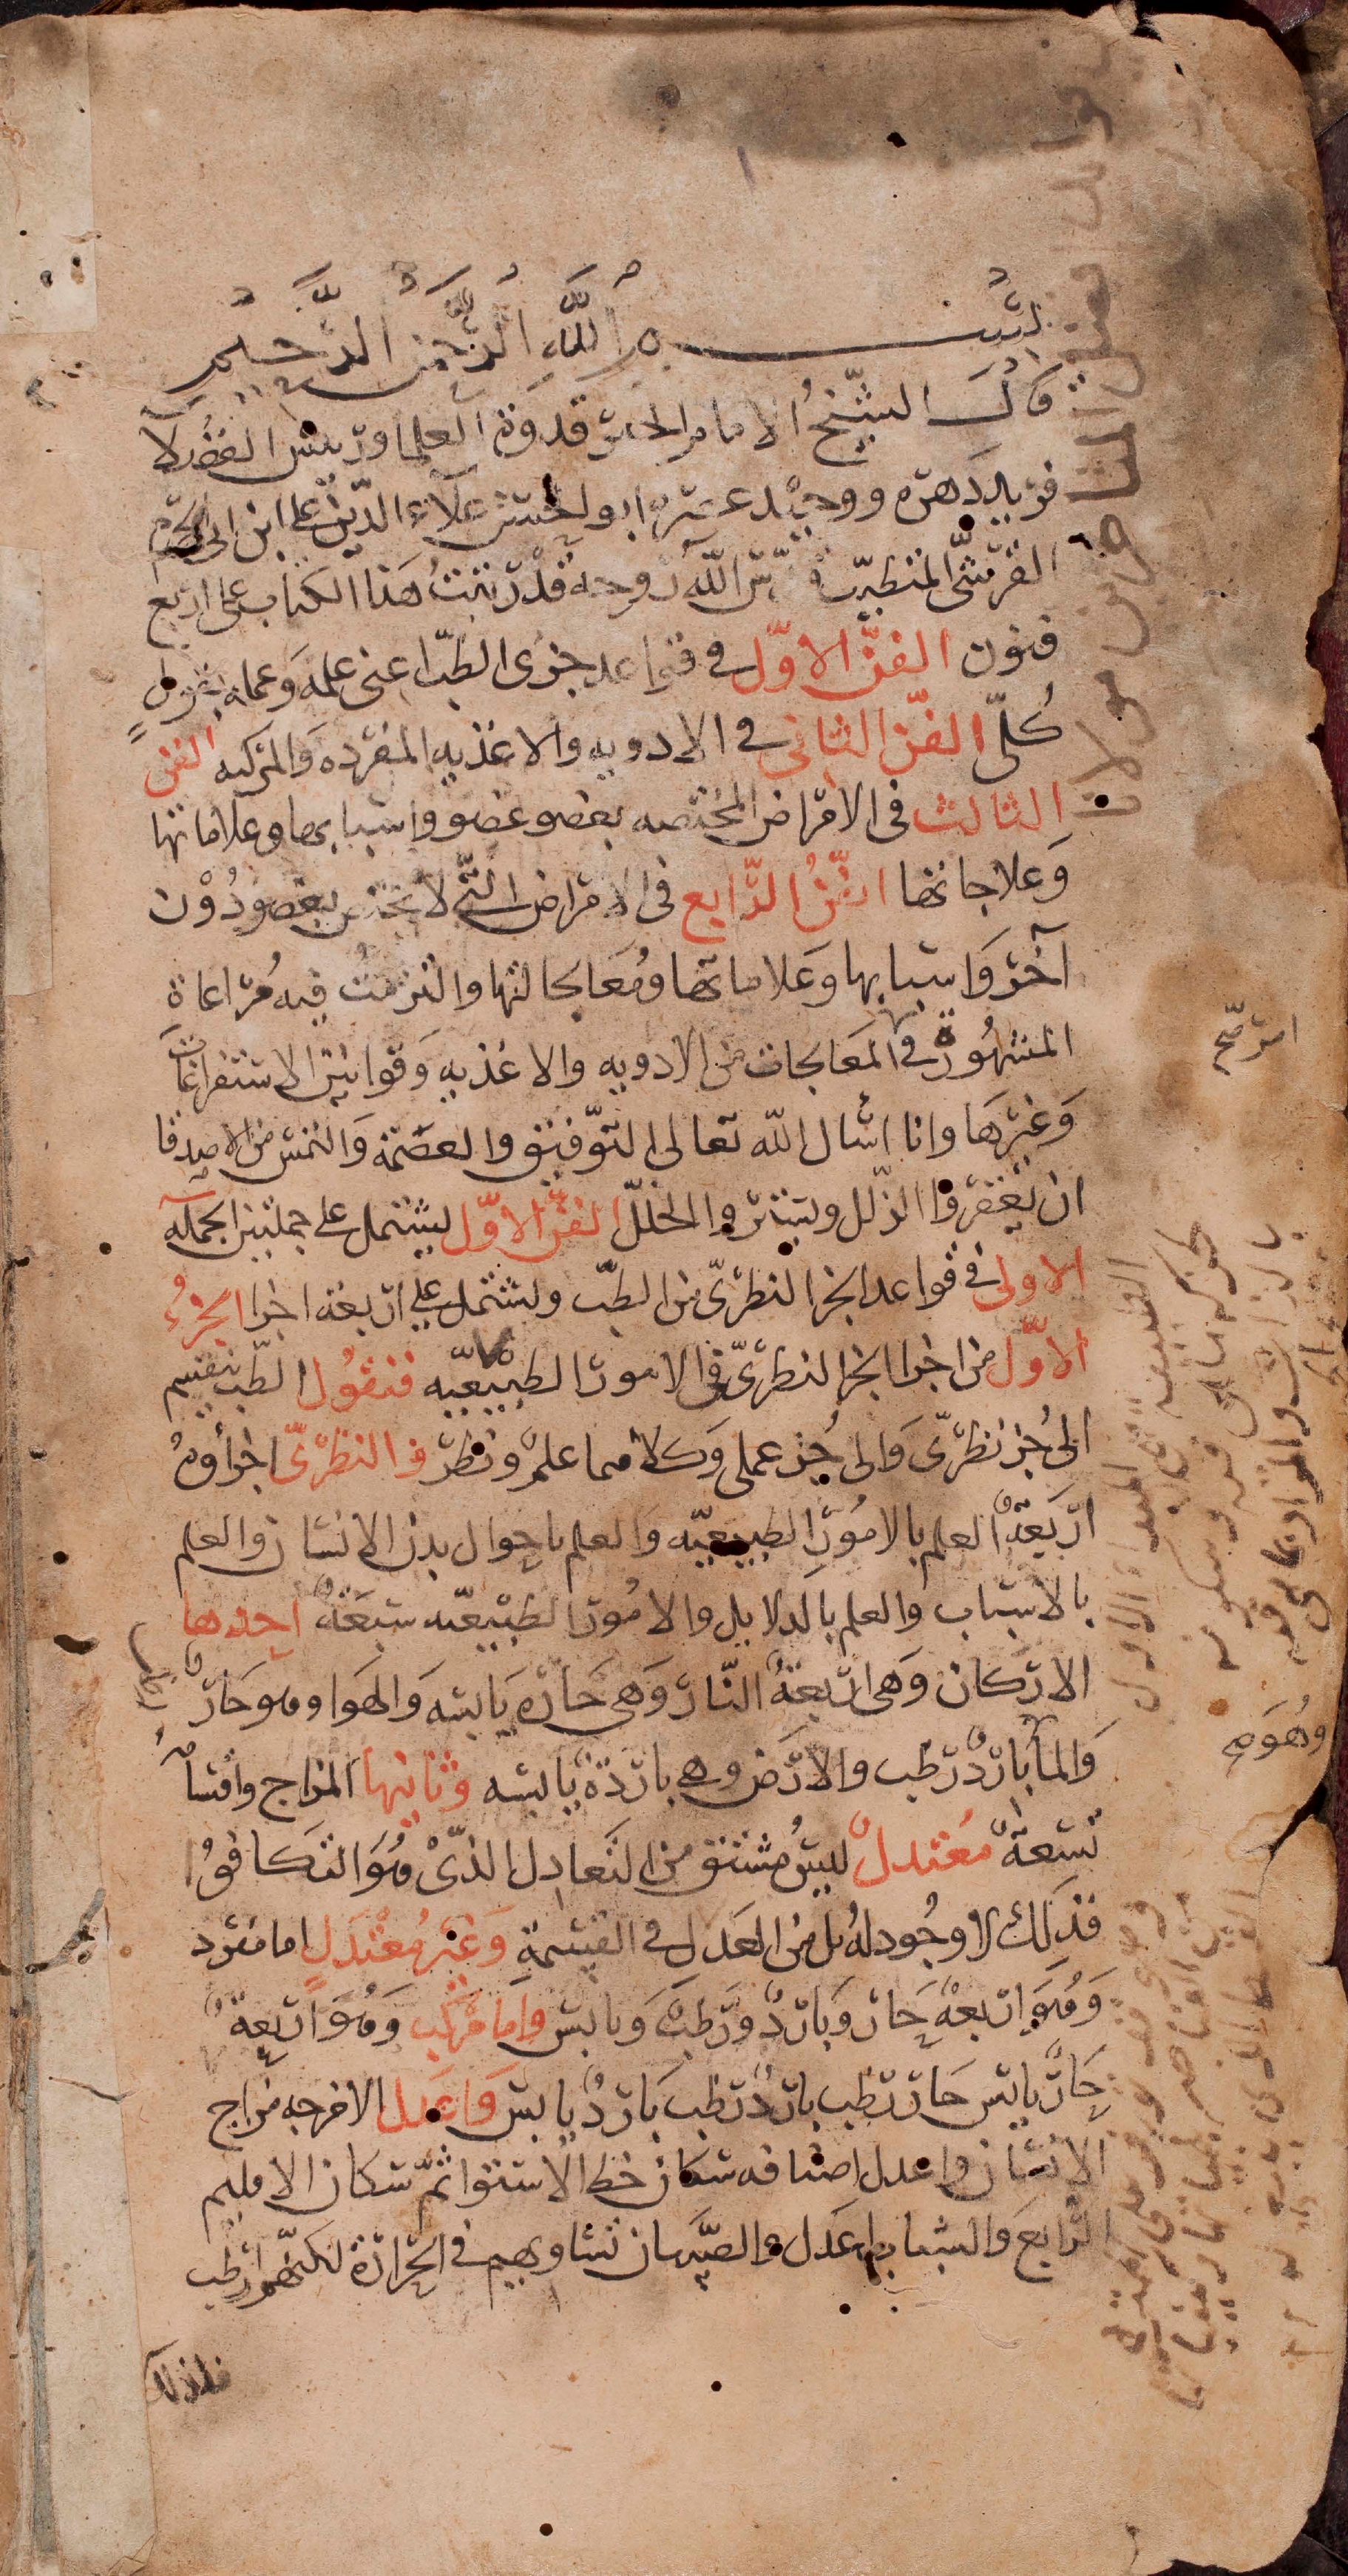 بسم الله الرحمن الرحيم
قال الشيخ الامام الحبر قدوة العلما ورئيس الفضلا
فريد دهره ووحيد عصره ابو الحسن علاء الدين على ابن ابى الحزم
القرشى المتطبب قدس الله روحه قد رتبت هذا الكتاب على اربع
فنون الفن الاول فى قواعد جزى الطب اعنى علمه وعمله بقول
كلى الفن الثانى فى الادويه والاغذيه المفرده والمركبه الفن
الثالث فى الامراض المختصه بعضو عضو واسبابها وعلاماتها
وعلاجاتها الفن الرابع فى الامراض التى لا تختص بعضو دون
آخر واسبابها وعلاماتها ومعالجاتها والتزمت فيه مراعاة
المشهورة فى المعالجات من الادويه والاغذيه وقوانين الاستفراغات
وغيرها وانا اسأل الله تعالى التوفيق والعصمة والتمس من الاصدقا
ان يغفروا الزلل ويستروا الخلل الفن الاول يشتمل على جملتين الجملة
الاولى فى قواعد الجز النظرى من الطب ويشتمل على اربعة اجزا الجزء
الاول من اجزا الجز النظرى فى الامور الطبيعيه فنقول الطب ينقسم
الى جز نظرى والى جز عملى وكلاهما علم ونظر فالنظرى اجزاؤه
اربعة العلم بالامور الطبيعيه والعلم باحوال بدن الانسان والعلم
بالاسباب والعلم بالدلايل والامور الطبيعيه سبعة احدها
الاركان وهى اربعة النار وهى حاره يابسه والهوا وهو حار
والما بارد رطب والارض وهى باردة يابسه وثانيها المزاج واقسامه
تسعة معتدل ليس مشتق من التعادل الذى هو التكافؤ
فذلك لا وجود له بل من العدل فى القسمة وغير معتدل اما مفرد
وهو اربعة حار وبارد ورطب ويابس واما مركب وهو اربعة
حار يابس حار رطب بارد رطب بارد يابس واعدل الامزجه مزاج
الانسان واعدل اصنافه سكان خط الاستوا ثم سكان الاقليم
الرابع والشباب اعدل والصبيان تساويهم فى الحرارة لكنهم ارطب
فلذلك
وهو صح